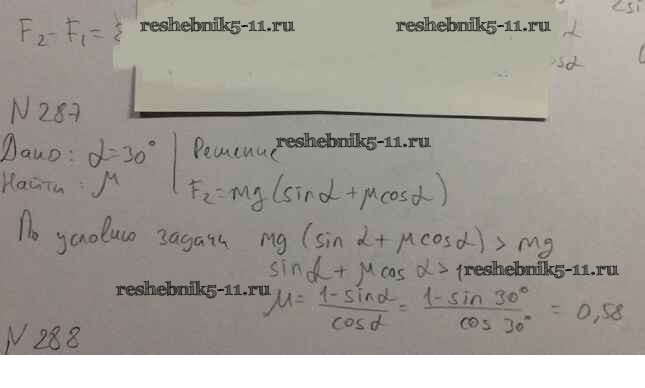 F₂ - F₁ =
reshebnik5-11.ru reshebnik5-11.ru
N 287
Дано: α=30° | Решение reshebnik5-11.ru
Найти: μ | F₂=mg(sinα+μcosα)
По условию задачи mg(sinα+μcosα)>mg
sinα+μcosα>1 reshebnik5-11.ru
reshebnik5-11.ru μ= (1-sinα)/cosα = (1-sin 30°)/cos 30° = 0,58
N 288